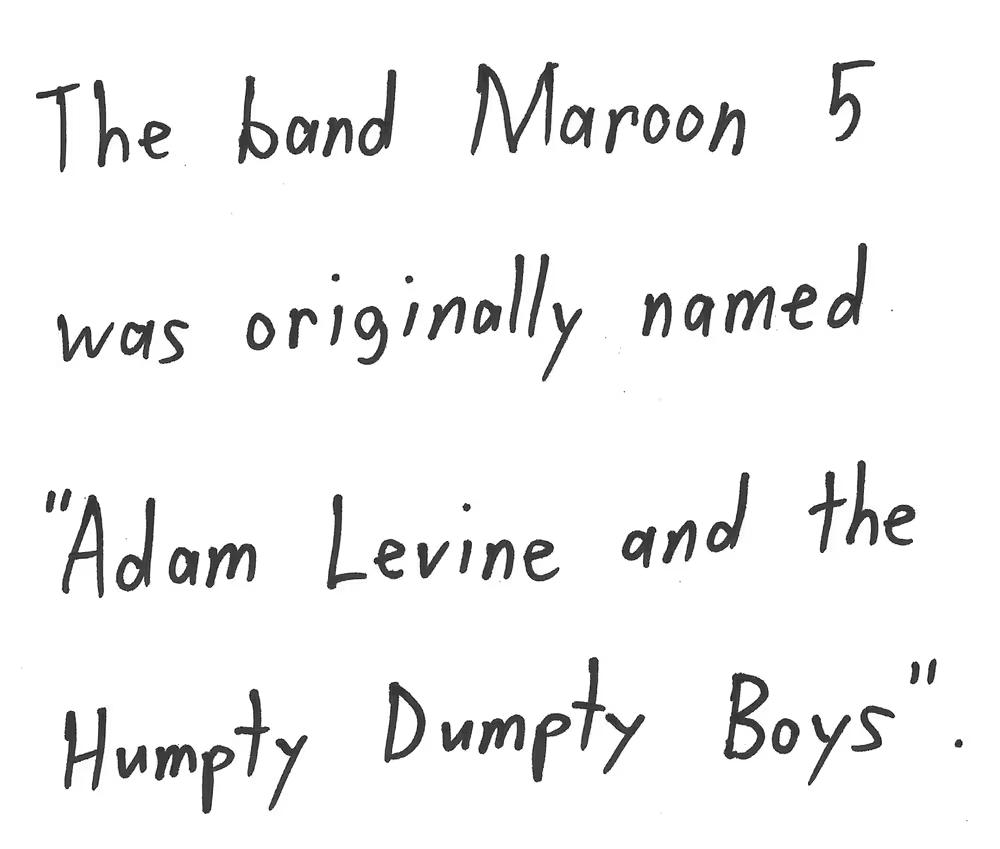 The band Maroon 5
was originally named
"Adam Levine and the
Humpty Dumpty Boys".